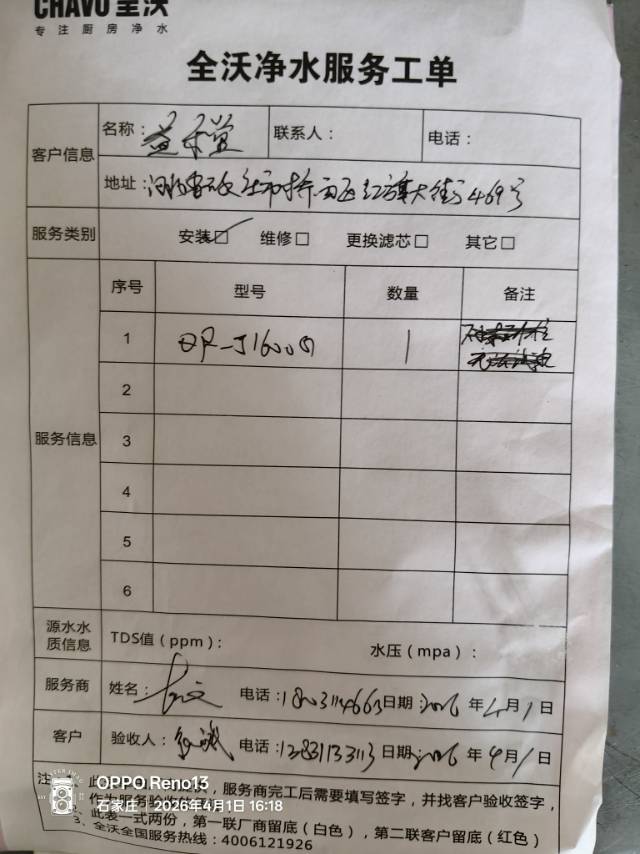 CHAVO 全沃
专注厨房净水
全沃净水服务工单
客户信息
名称：益禾堂 联系人： 电话：
地址： 红旗大街469号
服务类别 安装☑ 维修□ 更换滤芯□ 其它□
服务信息
序号 型号 数量 备注
1 1
2
3
4
5
6
源水水质信息
TDS值（ppm）： 水压（mpa）：
服务商 姓名： 电话：18031146663 日期 2026年4月1日
客户 验收人： 电话： 日期 2026年4月1日
服务商完工后需要填写签字，并找客户验收签字，
作为服务验收
此表一式两份，第一联厂商留底（白色），第二联客户留底（红色）
3、全沃全国服务热线：4006121926
OPPO Reno13
石家庄 2026年4月1日 16:18